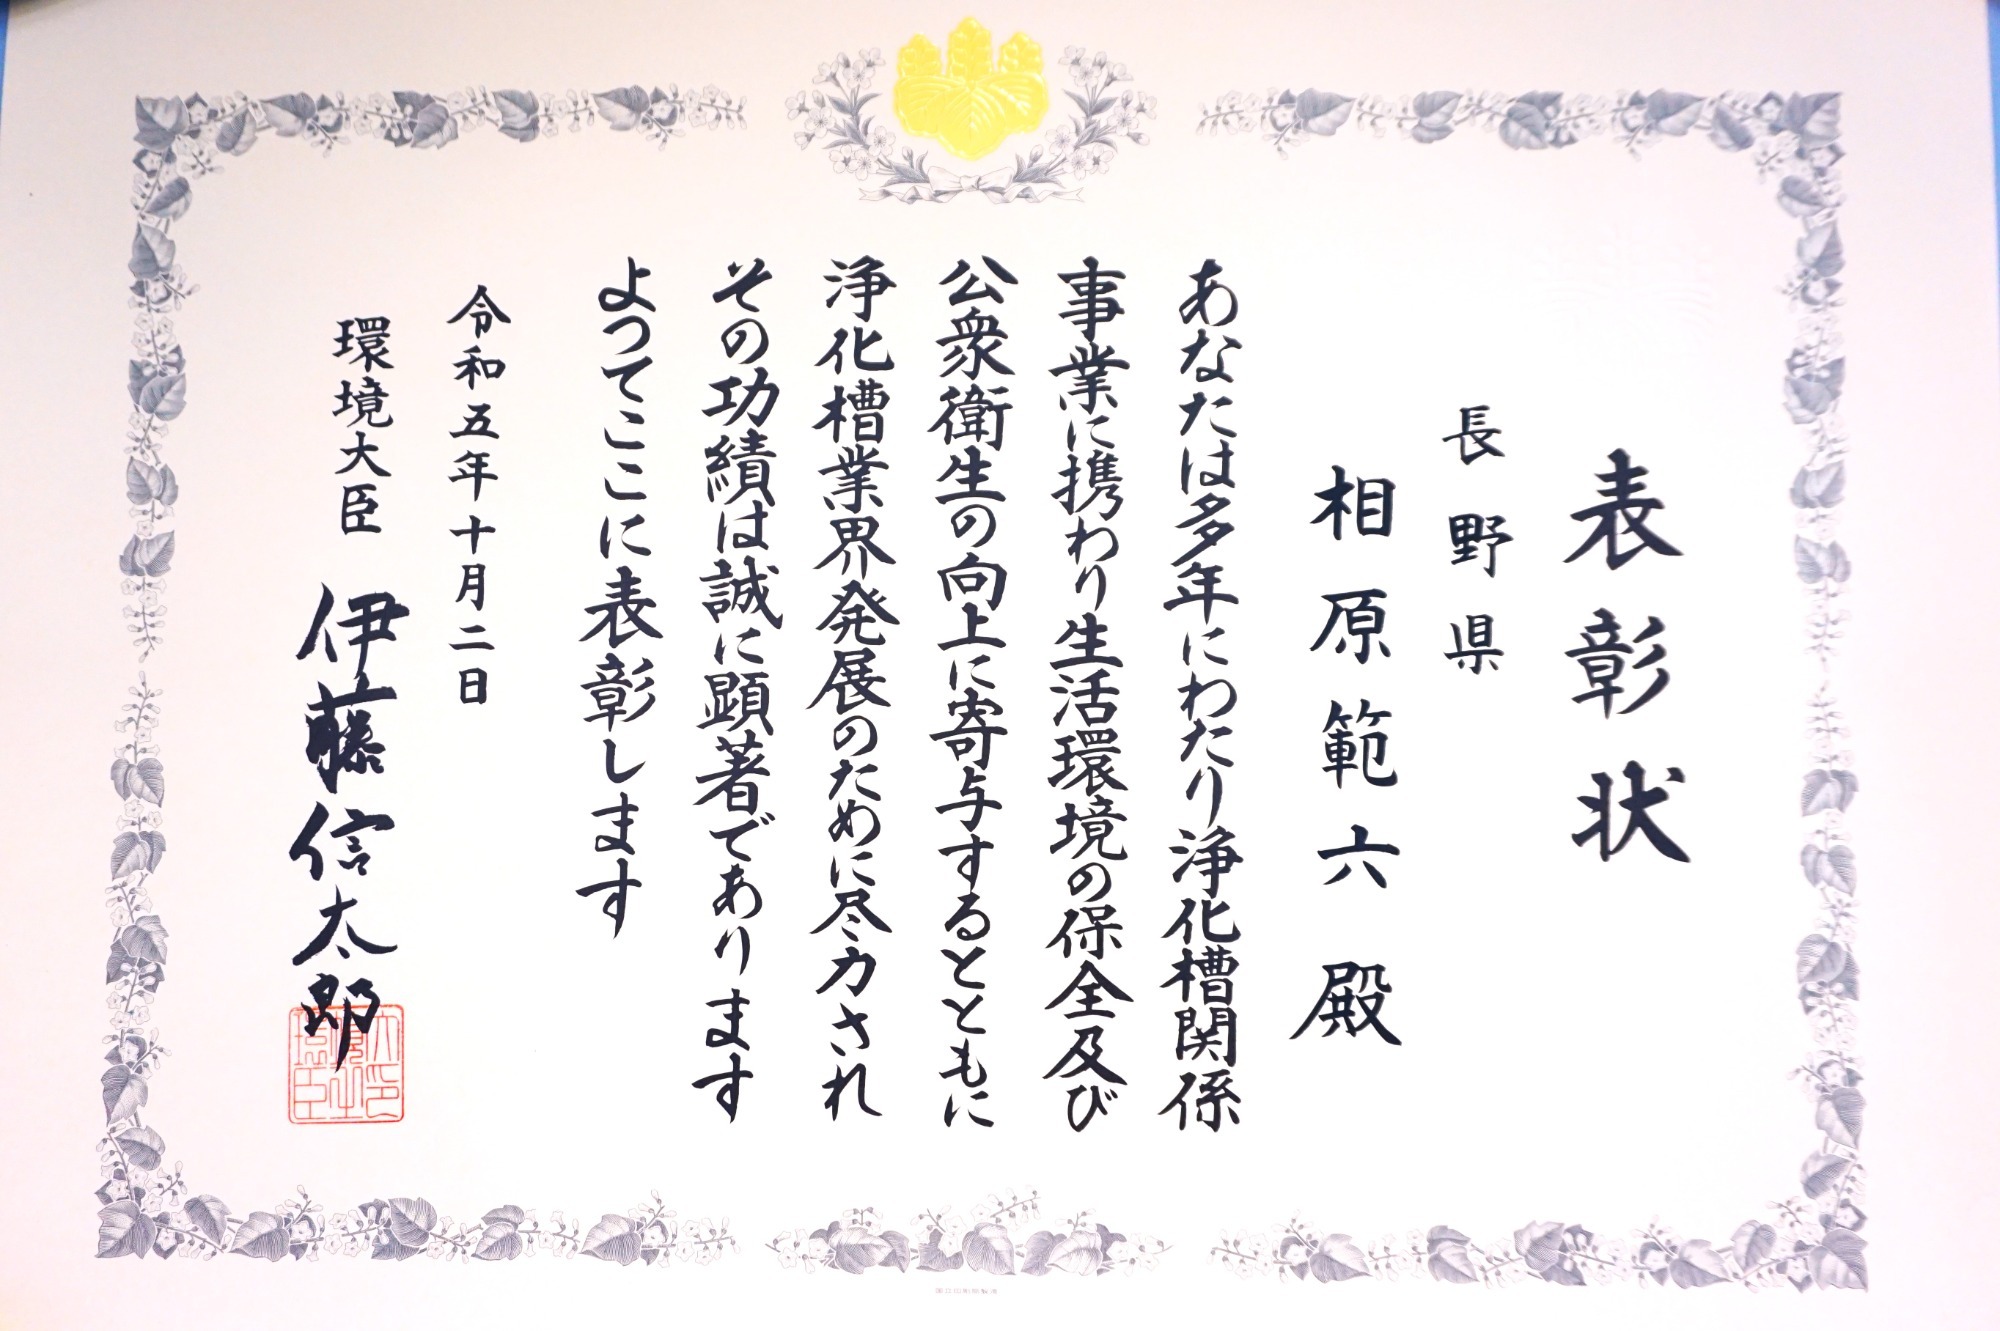 表彰状
長野県
相原範六殿
あなたは多年にわたり浄化槽関係
事業に携わり生活環境の保全及び
公衆衛生の向上に寄与するとともに
浄化槽業界発展のために尽力され
その功績は誠に顕著であります
よってここに表彰します
令和五年十月二日
環境大臣 伊藤信太郎